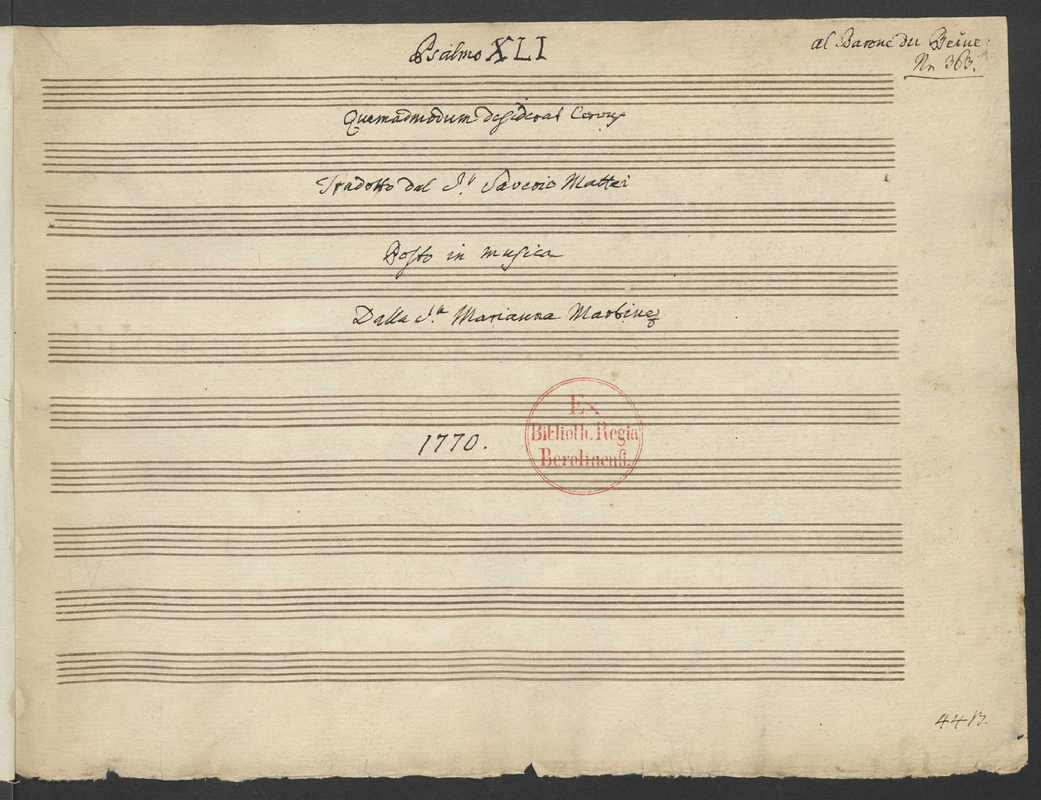 Psalmo XLI
al Barone du Beine
Nr. 363.
Quemadmodum desiderat Cervus
Tradotto dal S.r Saverio Mattei
Posto in musica
Dalla S.ra Marianna Martinez
1770.
Ex
Biblioth. Regia
Berolinensi.